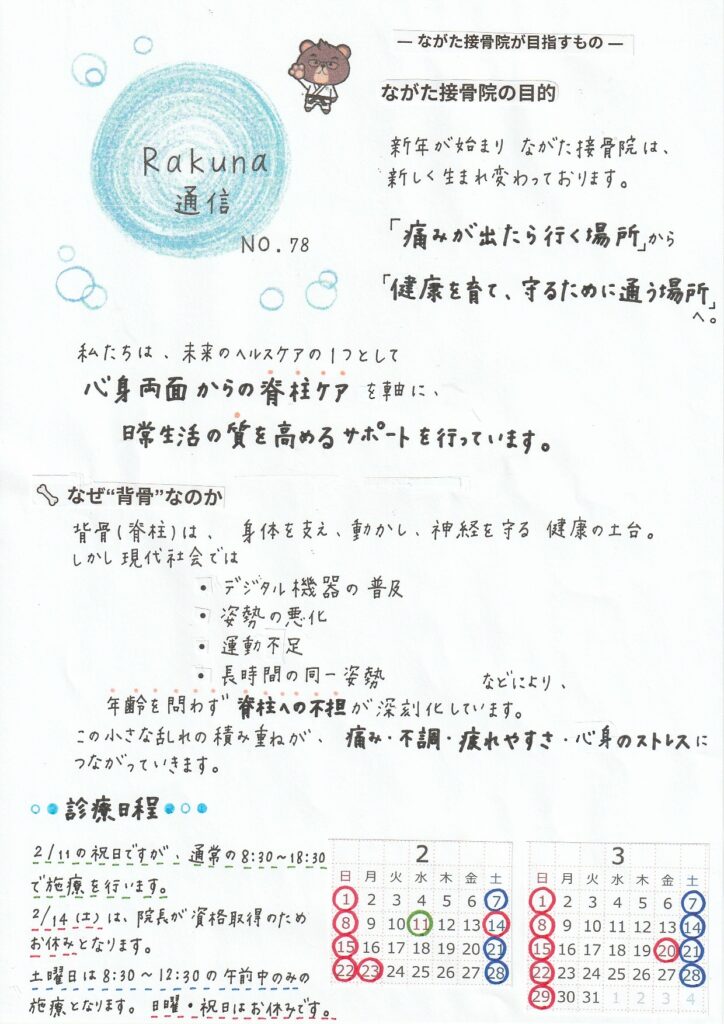 ― ながた接骨院が目指すもの ―
ながた接骨院の目的
Rakuna
通信
NO.78
新年が始まり ながた接骨院は、
新しく生まれ変わっております。
「痛みが出たら行く場所」から
「健康を育て、守るために通う場所」
へ。
私たちは、未来のヘルスケアの1つとして
心身両面からの脊柱ケア を軸に、
日常生活の質を高めるサポートを行っています。
なぜ“背骨”なのか
背骨(脊柱)は、 身体を支え、動かし、神経を守る 健康の土台。
しかし現代社会では
• デジタル機器の普及
• 姿勢の悪化
• 運動不足
• 長時間の同一姿勢 などにより、
年齢を問わず 脊柱への不担が深刻化しています。
この小さな乱れの積み重ねが、 痛み・不調・疲れやすさ・心身のストレスに
つながっていきます。
診療日程
2/11の祝日ですが、通常の8:30~18:30
で施療を行います。
2/14(土)は、院長が資格取得のため
お休みとなります。
土曜日は8:30~12:30の午前中のみの
施療となります。日曜・祝日はお休みです。
2
日 月 火 水 木 金 土
1 2 3 4 5 6 7
8 9 10 11 12 13 14
15 16 17 18 19 20 21
22 23 24 25 26 27 28
3
日 月 火 水 木 金 土
1 2 3 4 5 6 7
8 9 10 11 12 13 14
15 16 17 18 19 20 21
22 23 24 25 26 27 28
29 30 31 1 2 3 4